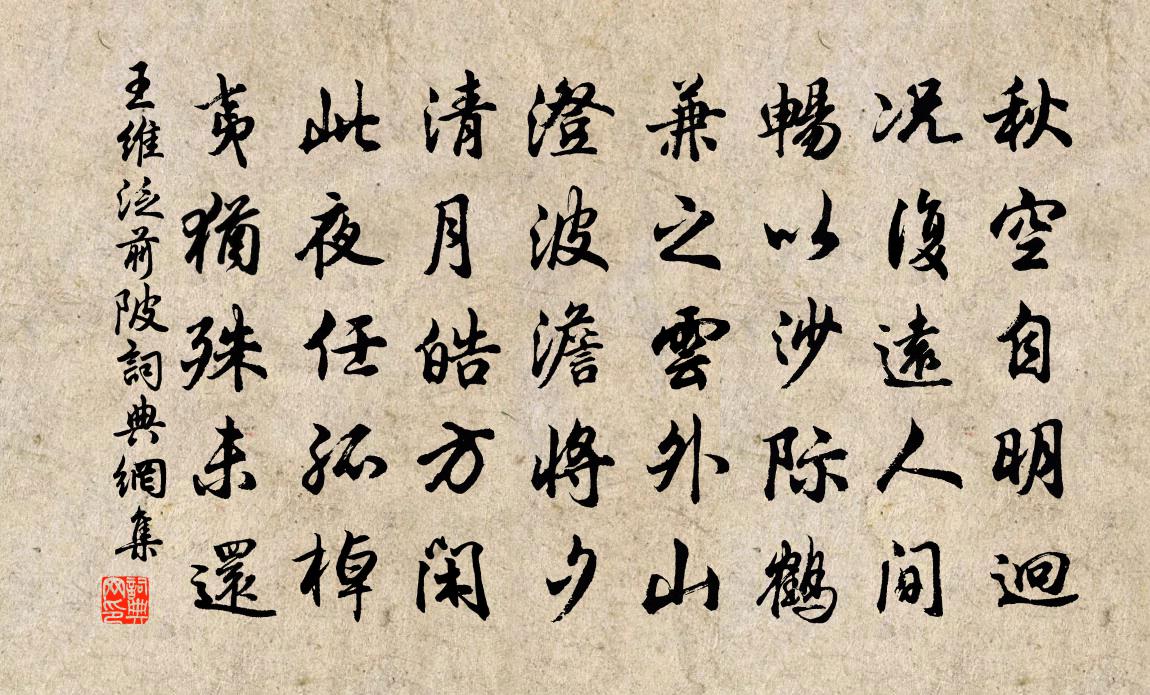 秋空自明迥
况復遠人間
暢以沙际鶴
兼之雲外山
澄波澹將夕
清月皓方閑
此夜任孤棹
夷猶殊未還
王維泛前陂詞典網集
詞典網印